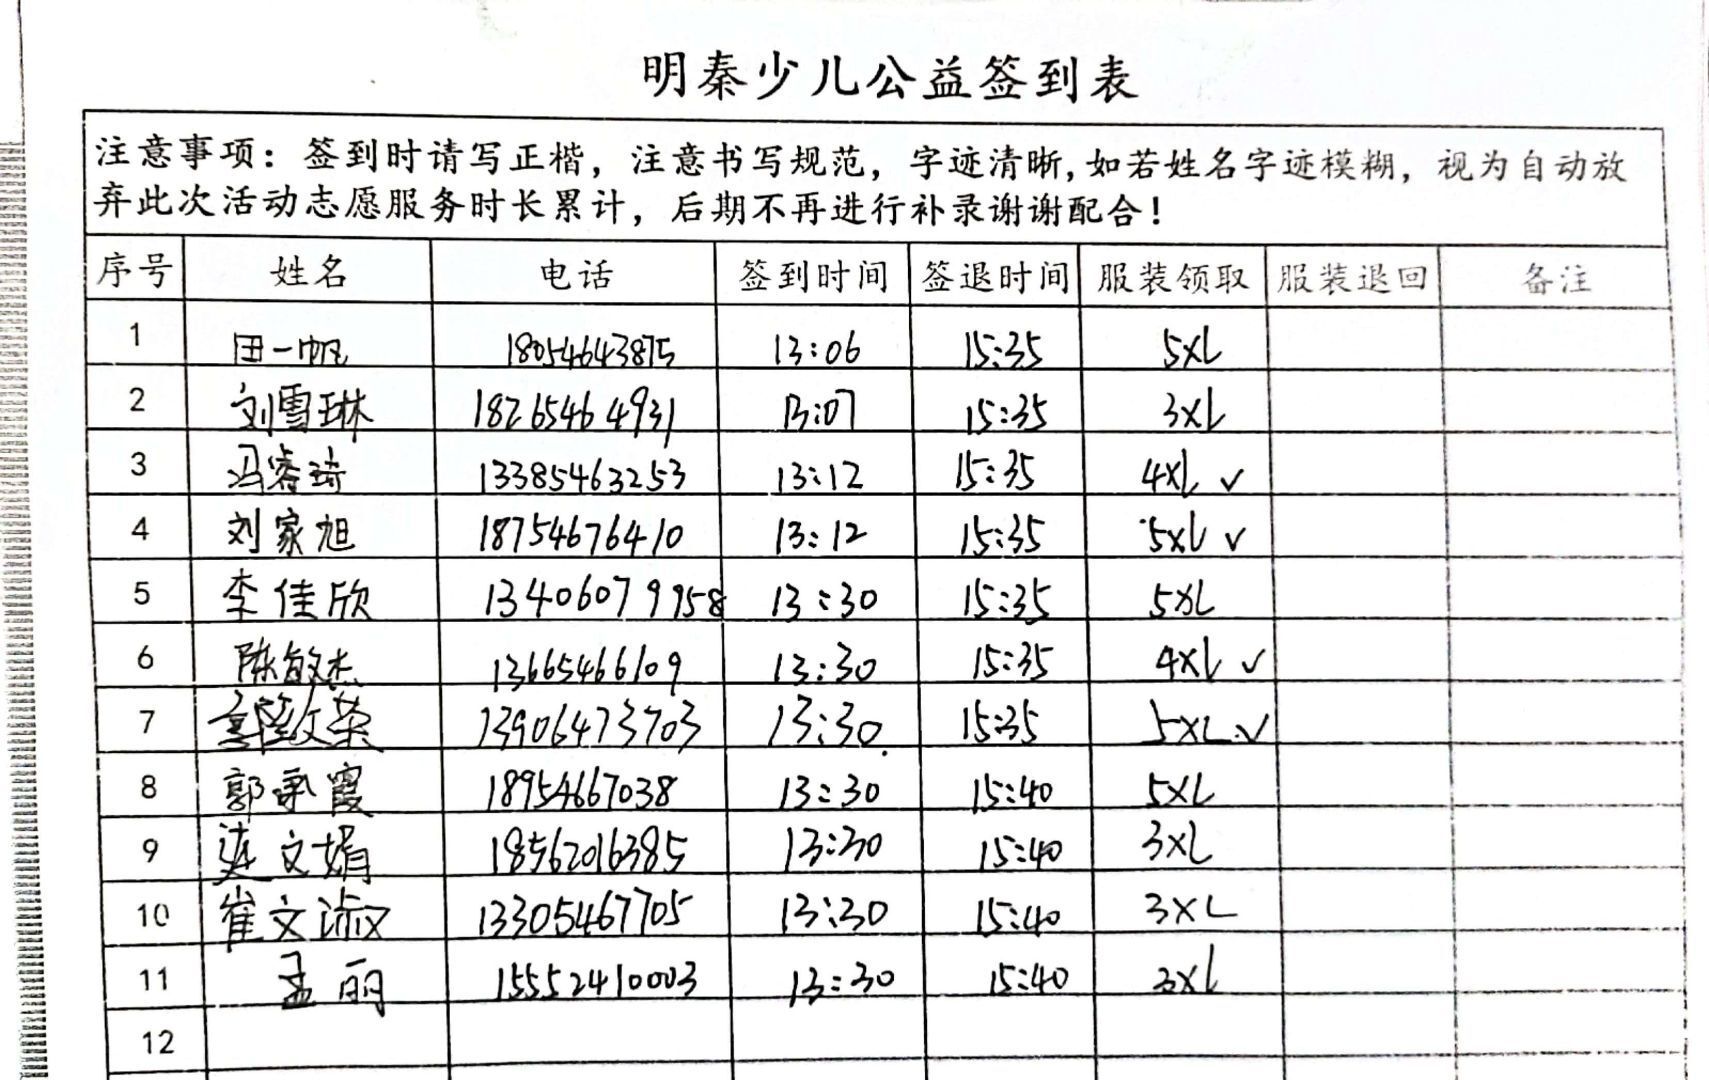 明秦少儿公益签到表
注意事项：签到时请写正楷，注意书写规范，字迹清晰,如若姓名字迹模糊，视为自动放
弃此次活动志愿服务时长累计，后期不再进行补录谢谢配合！
序号 姓名 电话 签到时间 签退时间 服装领取 服装退回 备注
1 田一帆 18054643875 13:06 15:35 5XL
2 刘雪琳 18265464931 13:07 15:35 3XL
3 冯睿琦 13385463253 13:12 15:35 4XL ✓
4 刘家旭 18754676410 13:12 15:35 5XL ✓
5 李佳欣 13406079958 13:30 15:35 5XL
6 陈敏杰 13665466109 13:30 15:35 4XL ✓
7 13906473703 13:30 15:35 5XL ✓
8 郭承霞 18954667038 13:30 15:40 5XL
9 文娟 18562016385 13:30 15:40 3XL
10 崔文淑 13305467705 13:30 15:40 3XL
11 孟丽 15552410003 13:30 15:40 3XL
12